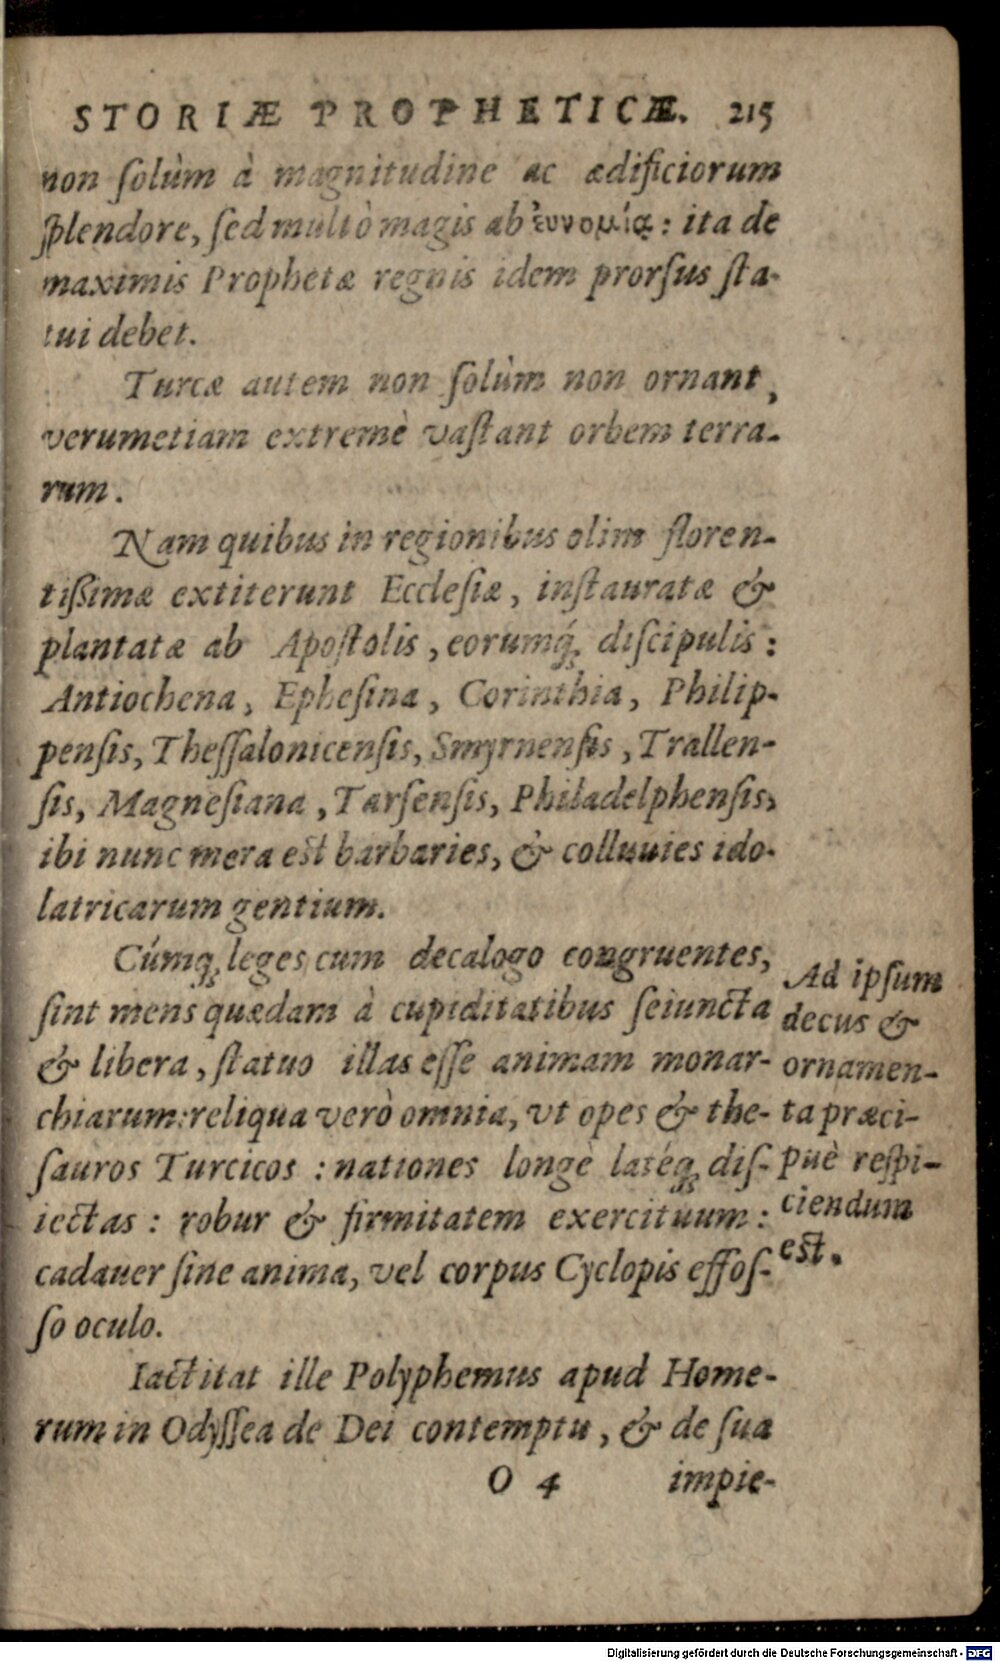 STORIÆ PROPHETICÆ. 215
non ſolùm à magnitudine ac ædificiorum
ſplendore, ſed multò magis ab ἐυνομίᾳ: ita de
maximis Prophetæ regnis idem prorſus ſta-
tui debet.
Turcæ autem non ſolùm non ornant,
verumetiam extremè vaſtant orbem terra-
rum.
Nam quibus in regionibus olim floren-
tißimæ extiterunt Eccleſiæ, inſtauratæ &
plantatæ ab Apoſtolis, eorumq́; diſcipulis:
Antiochena, Epheſina, Corinthia, Philip-
penſis, Theſſalonicenſis, Smyrnenſis, Trallen-
ſis, Magneſiana, Tarſenſis, Philadelphenſis,
ibi nunc mera est barbaries, & colluuies ido-
latricarum gentium.
Cúmq; leges cum decalogo congruentes,
ſint mens quædam à cupiditatibus ſeiuncta
& libera, ſtatuo illas eſſe animam monar-
chiarum: reliqua verò omnia, vt opes & the-
ſauros Turcicos: nationes longè latéq; diſ-
iectas: robur & firmitatem exercituum:
cadauer ſine anima, vel corpus Cyclopis effoſ-
ſo oculo.
Iactitat ille Polyphemus apud Home-
rum in Odyſſea de Dei contemptu, & de ſua
O 4 impie-
Ad ipſum
decus &
ornamen-
ta præci-
puè reſpi-
ciendum
est.
Digitalisierung gefördert durch die Deutsche Forschungsgemeinschaft - DFG